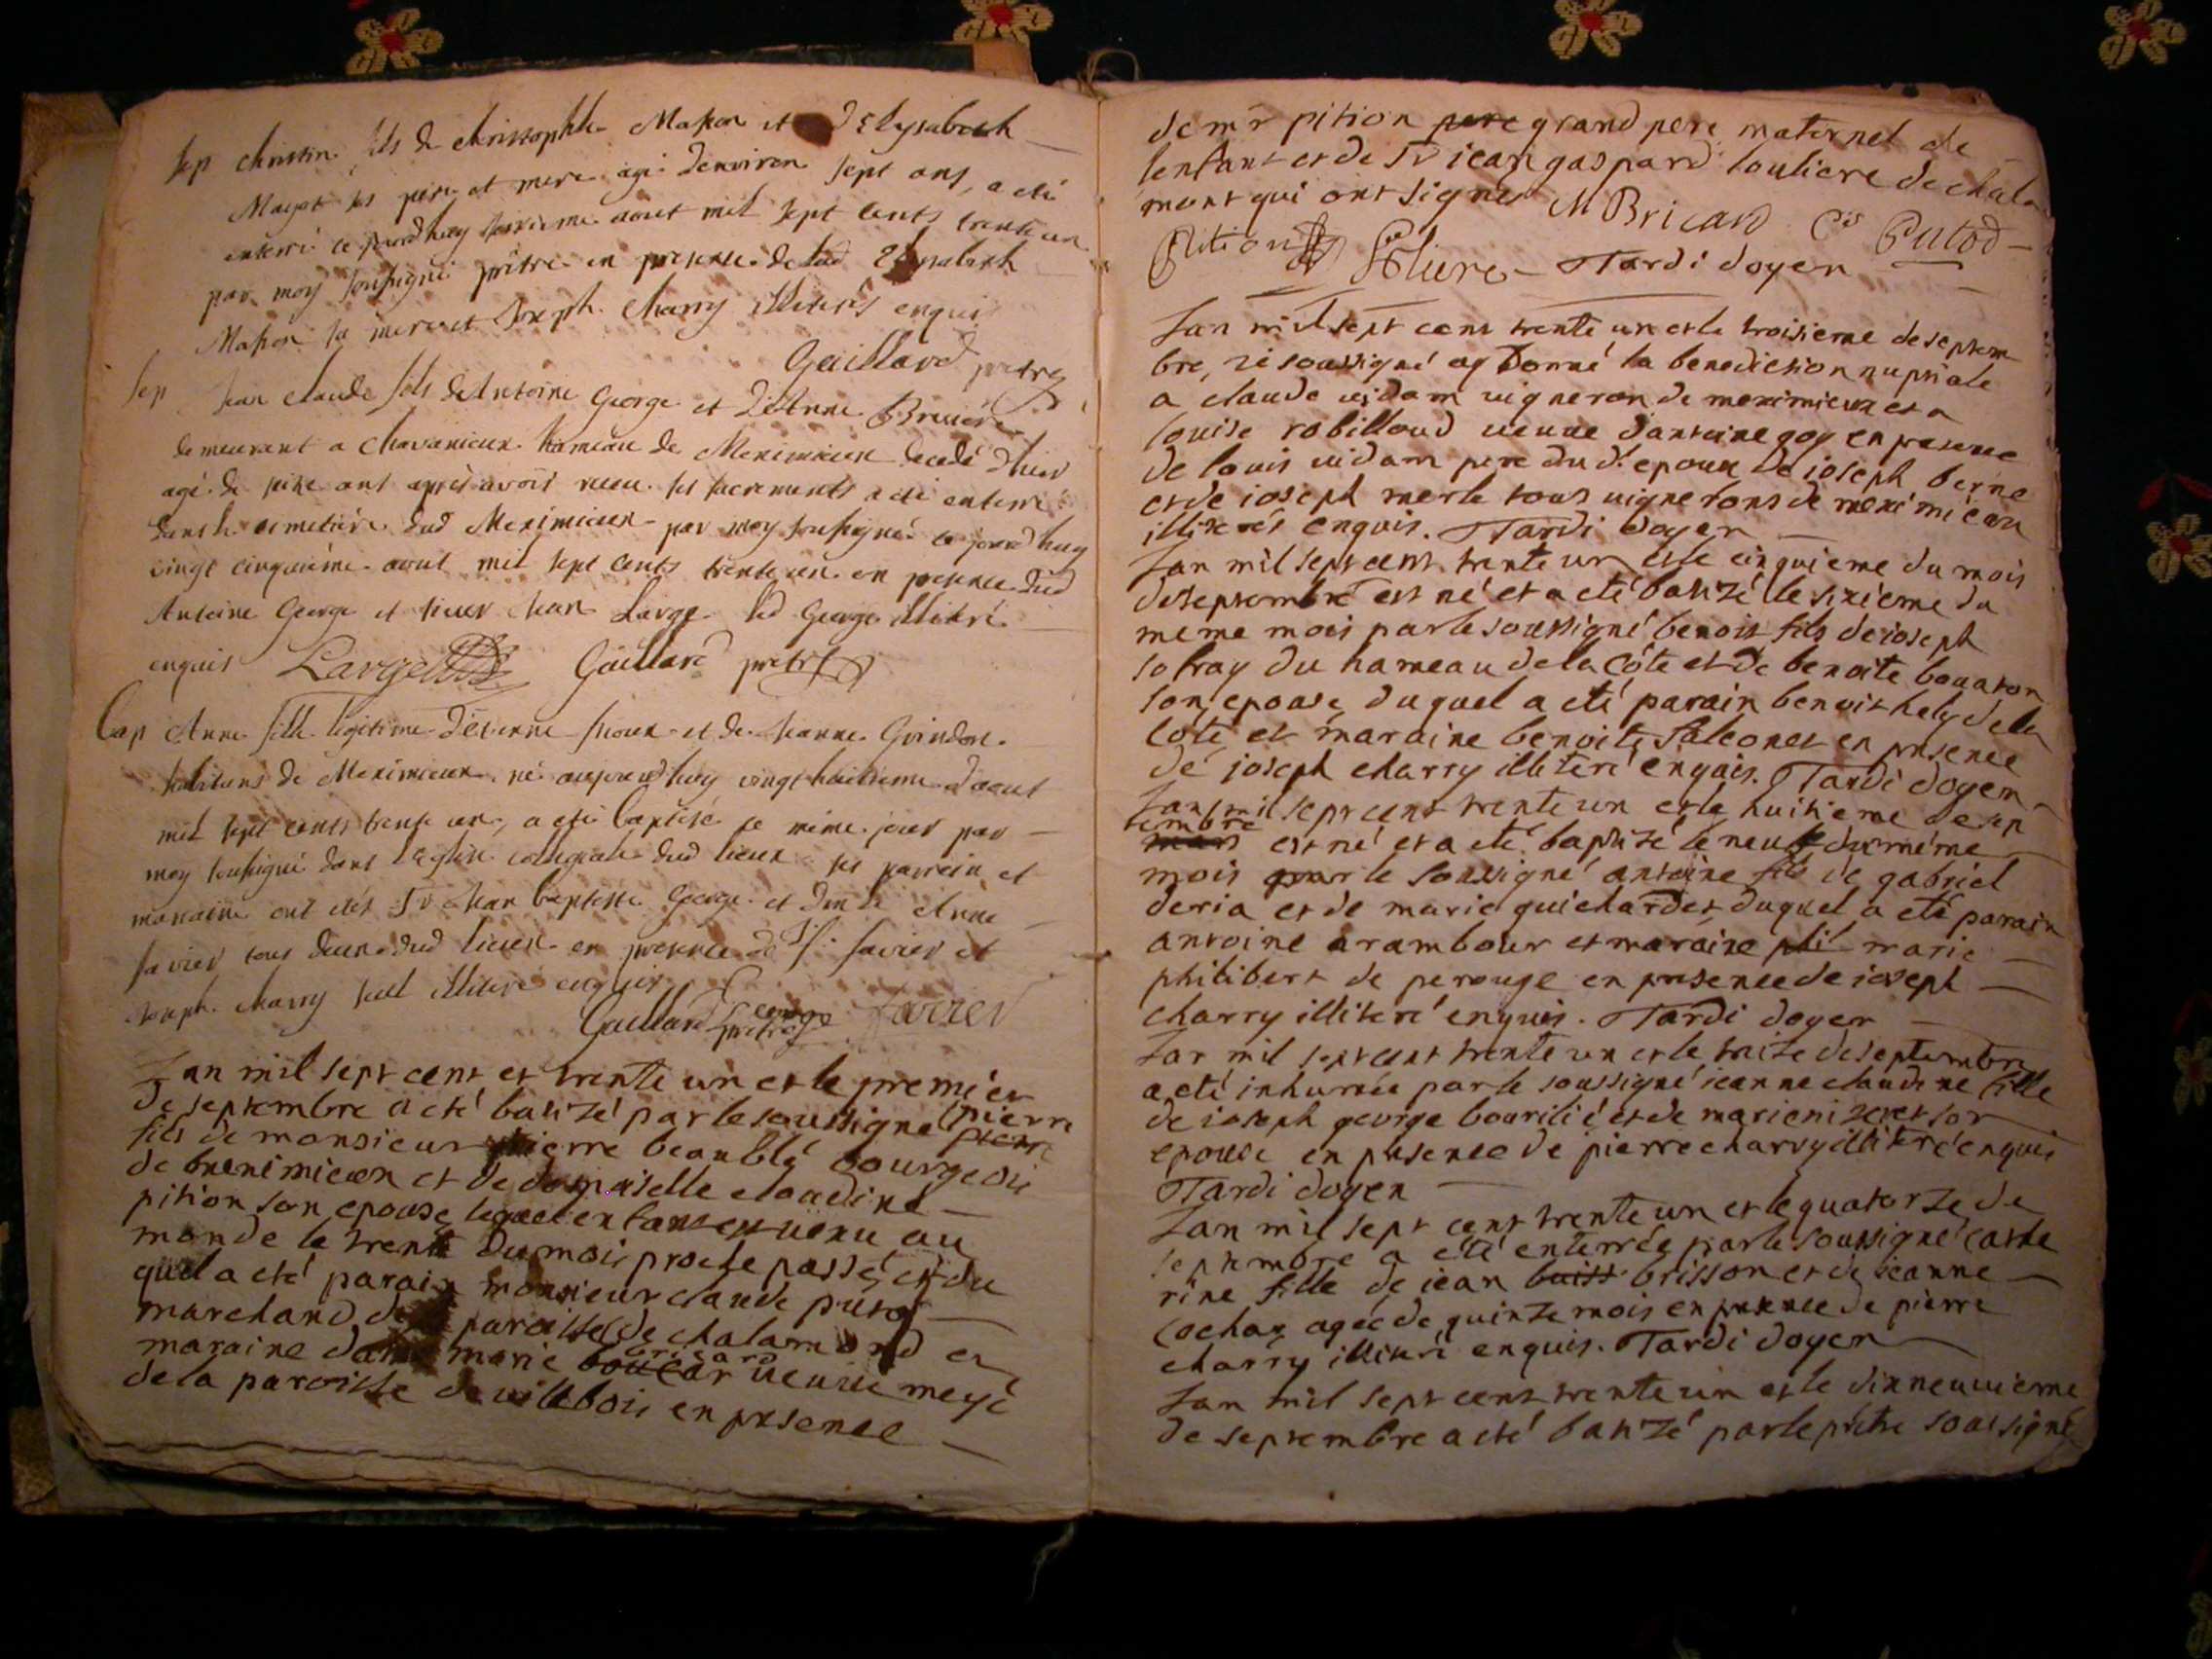 sep christin fils de christophle Masson et d Elysabeth
Mayot ses pere et mere agé denviron sept ans, a eté
enterré ce jourdhuy aout mil sept cents trente un
par moy soussigné prêtre en presence de lad Elysabeth
Masson sa mere et Joseph charry illiterés enquis
Gaillard pretre
sep Jean claude fils de Antoine George et de Anne Bruiere
demeurant a chavanieux hameau de Meximieux decedé dhier
agé de seize ans apprès avoir receu ses sacrements a eté enterré
dans le cimetière dud Meximieux par moy soussigné ce jourdhuy
vingt cinquième aout mil sept cents trente un en presence dud
Antoine George et sieur Jean Large led George illitéré
enquis Large Gaillard pretre
bap Anne fille legitime d'étienne sioux et de Jeanne Guindon
habitans de Meximieux né aujourdhuy vingt huitieme d'aout
mil sept cents trente un, a été baptisé le même jour par
moy soussigné dans l'eglise collegiale dud lieux ses parrein et
maraine ont etés Sr Jean baptiste George et Anne
favier tous deux dud lieux en presence de Sr favier et
Joseph charry seul illiteré enquis
Gaillard pretre George favier
Lan mil sept cent et trente un et le premier
de septembre a eté batizé par le soussigné pierre
fils de monsieur pierre beaublé bourgeois
de meximieux et de demoiselle claudine
pition son epouse lequel enfant est venu au
monde le trente du mois proche passé, et du
quel a eté parain monsieur claude putod
marchand de la paroisse de chalamond et
maraine dame marie bricard veuve meyé
de la paroisse de villebois en presence
de mr pition pere grand pere maternel de
lenfant et de Sr iean gaspard touliere de chala
mont qui ont signes M Bricard Cs Putod
Pition Tardi doyen
Lan mil sept cent trente un et le troisieme de septem
bre, ie soussigné ay donné la benediction nuptiale
a claude vidam vigneron de meximieux et a
louise robilloud veuve d'antoine goy en presence
de louis vidam pere du dt epoux de ioseph berne
et de ioseph merle tous vignerons de meximieux
illiterés enquis. Tardi doyen
Lan mil sept cent trente un et le cinquieme du mois
de septembre est né et a eté batizé le sixieme du
meme mois par le soussigné benoit fils de ioseph
sobray du hameau de la Côte et de benoite bouaton
son epouse, duquel a eté parain benoit hely de la
Côte et maraine benoite falconet en presence
de joseph charry illiteré enquis. Tardi doyen
Lan mil sept cent trente un et le huitieme de sep
tembre
mois est né et a eté baptizé le neuf du même
mois par le soussigné antoine fils de gabriel
deria et de marie guichardet, duquel a eté parain
antoine arambour et maraine phil marie
philibert de perouge en presence de ioseph
charry illiteré enquis. Tardi doyen
Lan mil sept cent trente un et le treize de septembre
a eté inhumée par le soussigné ieanne claudine fille
de ioseph george bourilié et de marie nizeret son
epouse en presence de pierre charry illiteré enquis
Tardi doyen
Lan mil sept cent trente un et le quatorze de
septembre a eté enterrée par le soussigné cathe
rine fille de iean buiss brisson et de ieanne
cochar agée de quinze mois en presence de pierre
charry illiteré enquis. Tardi doyen
Lan mil sept cent trente un et le dixneuvieme
de septembre a eté batizé par le prêtre soussigné